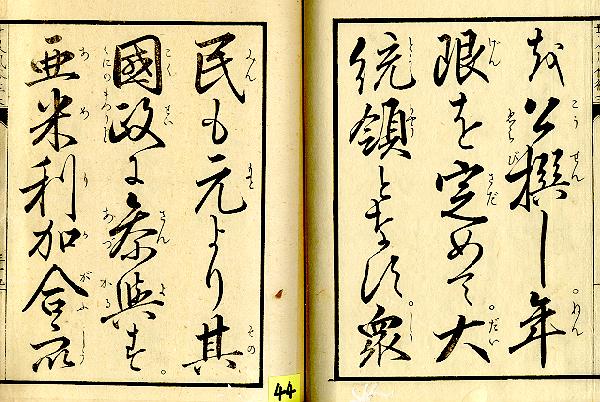 を公撰し。年
限を定めて。大
統領となす。衆
民も元より其
國政に参與す。
亜米利加合衆
44